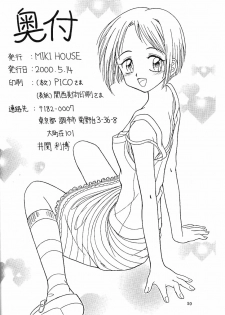 奥付
発行：MIKI HOUSE
発行日：2000.5.14
印刷：(本文) PICOさま
(表紙) 関西美術印刷さま
連絡先：〒182-0007
東京都 調布市 菊野台3-36-8
大町荘101
井関 利博